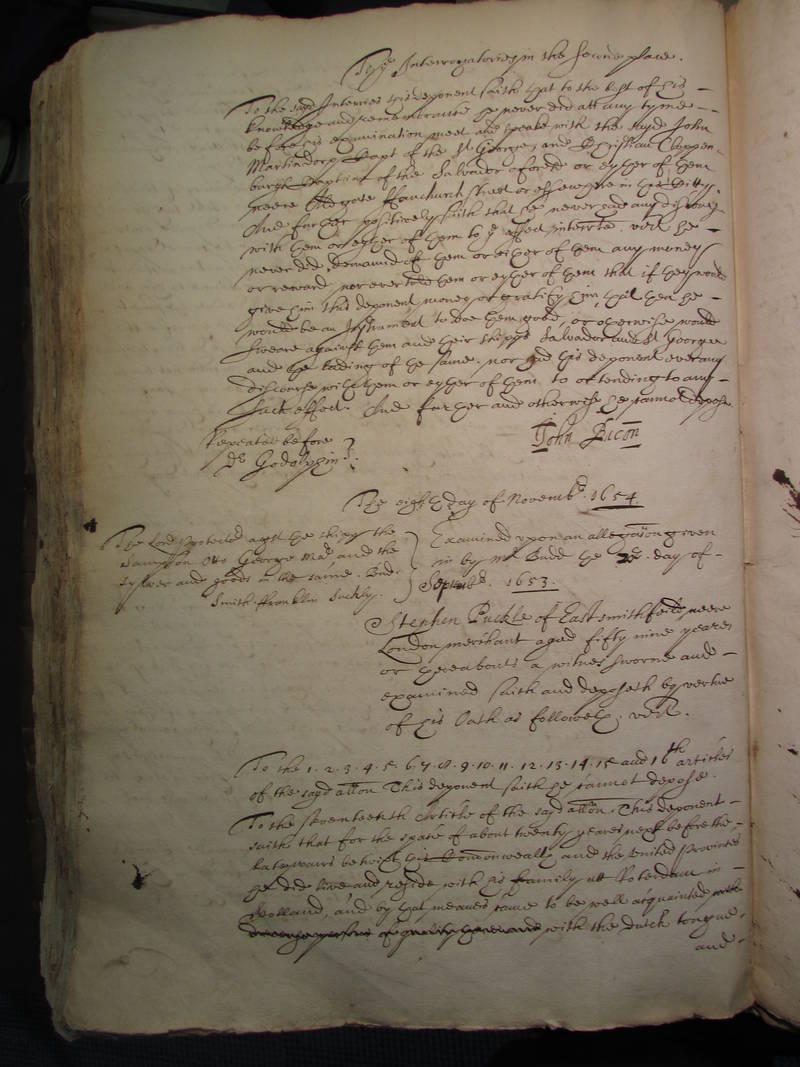 To the Interrogatories in the second place.
To the sayd Interries this deponent saith that to the best of his
knowledge and remembrance he never did att any tyme
before his examination meet and speake with the sayd John
Martindorp Capt of the St George, and Christian Cloppen
burgh Captaine of the Salvador aforesd or eyther of them
neere Algate ffanchurch street or elsewhere in this Citty,
And further positively saith that he never had any discourse
with them or eyther of them to ye effect interrte. vizt he
never did demaund of them or either of them any moneys
or reward nor ever told them or eyther of them that if they would
give him this deponent money or gratify him that then he
would be an Instrument to doe them good, or otherwise would
sweare against them and their shipps Salvador and St George
and the lading of the same. nor had this deponent ever any
discourse with them or eyther of them to or tending to any
such effect. And further and otherwise he cannot depose.
Repeated before
Dr Godolphin
John Bacon
The eighth day of Novembr. 1654.
The Lord Protector agst the shipps the
Sampson Otto George Mar and the
sylver and goods in the same. Budd.
Smith. ffranklin Suckly.
Examined upon an allegation given
in by Mr Budd the day of
Septembr. 1653.
Stephen Puckle of Eastsmithfeild neere
London merchant aged fifty nine yeares
or thereabouts a witnes sworne and
examined saith and deposeth by vertue
of his Oath as followeth. vizt.
To the 1. 2. 3. 4. 5. 6. 7. 8. 9. 10. 11. 12. 13. 14. 15 and 16th articles
of the sayd allon This deponent saith he cannot depose.
To the seventeenth Article of the sayd allon. This deponent
saith that for the space of about twenty yeares next before the
late warrs betwixt this Commonwealth and the United Provinces
he did live and reside with his family att Roterdam in
Holland, and by that meanes came to be well acquainted with
divers persons of quality there and with the dutch tongue
and